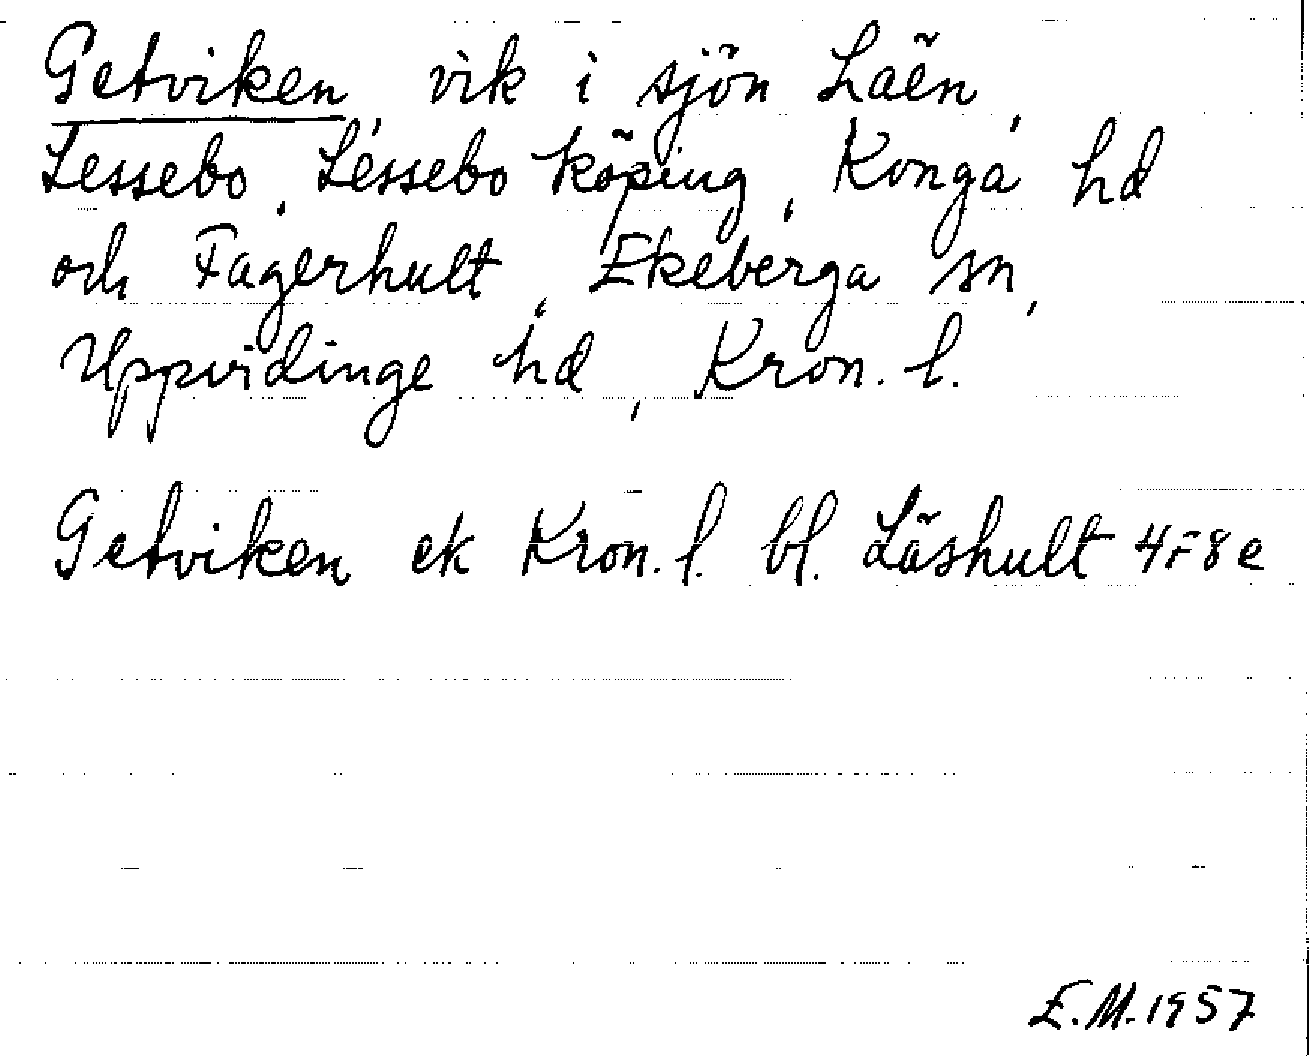 Getviken, vik i sjön Läen,
Lessebo, Lessebo köping, Konga hd
och Fagerhult, Ekeberga sn,
Uppvidinge hd, Kron. l.
Getviken ek Kron. l. bl. Läshult 4F8e
E.M. 1957